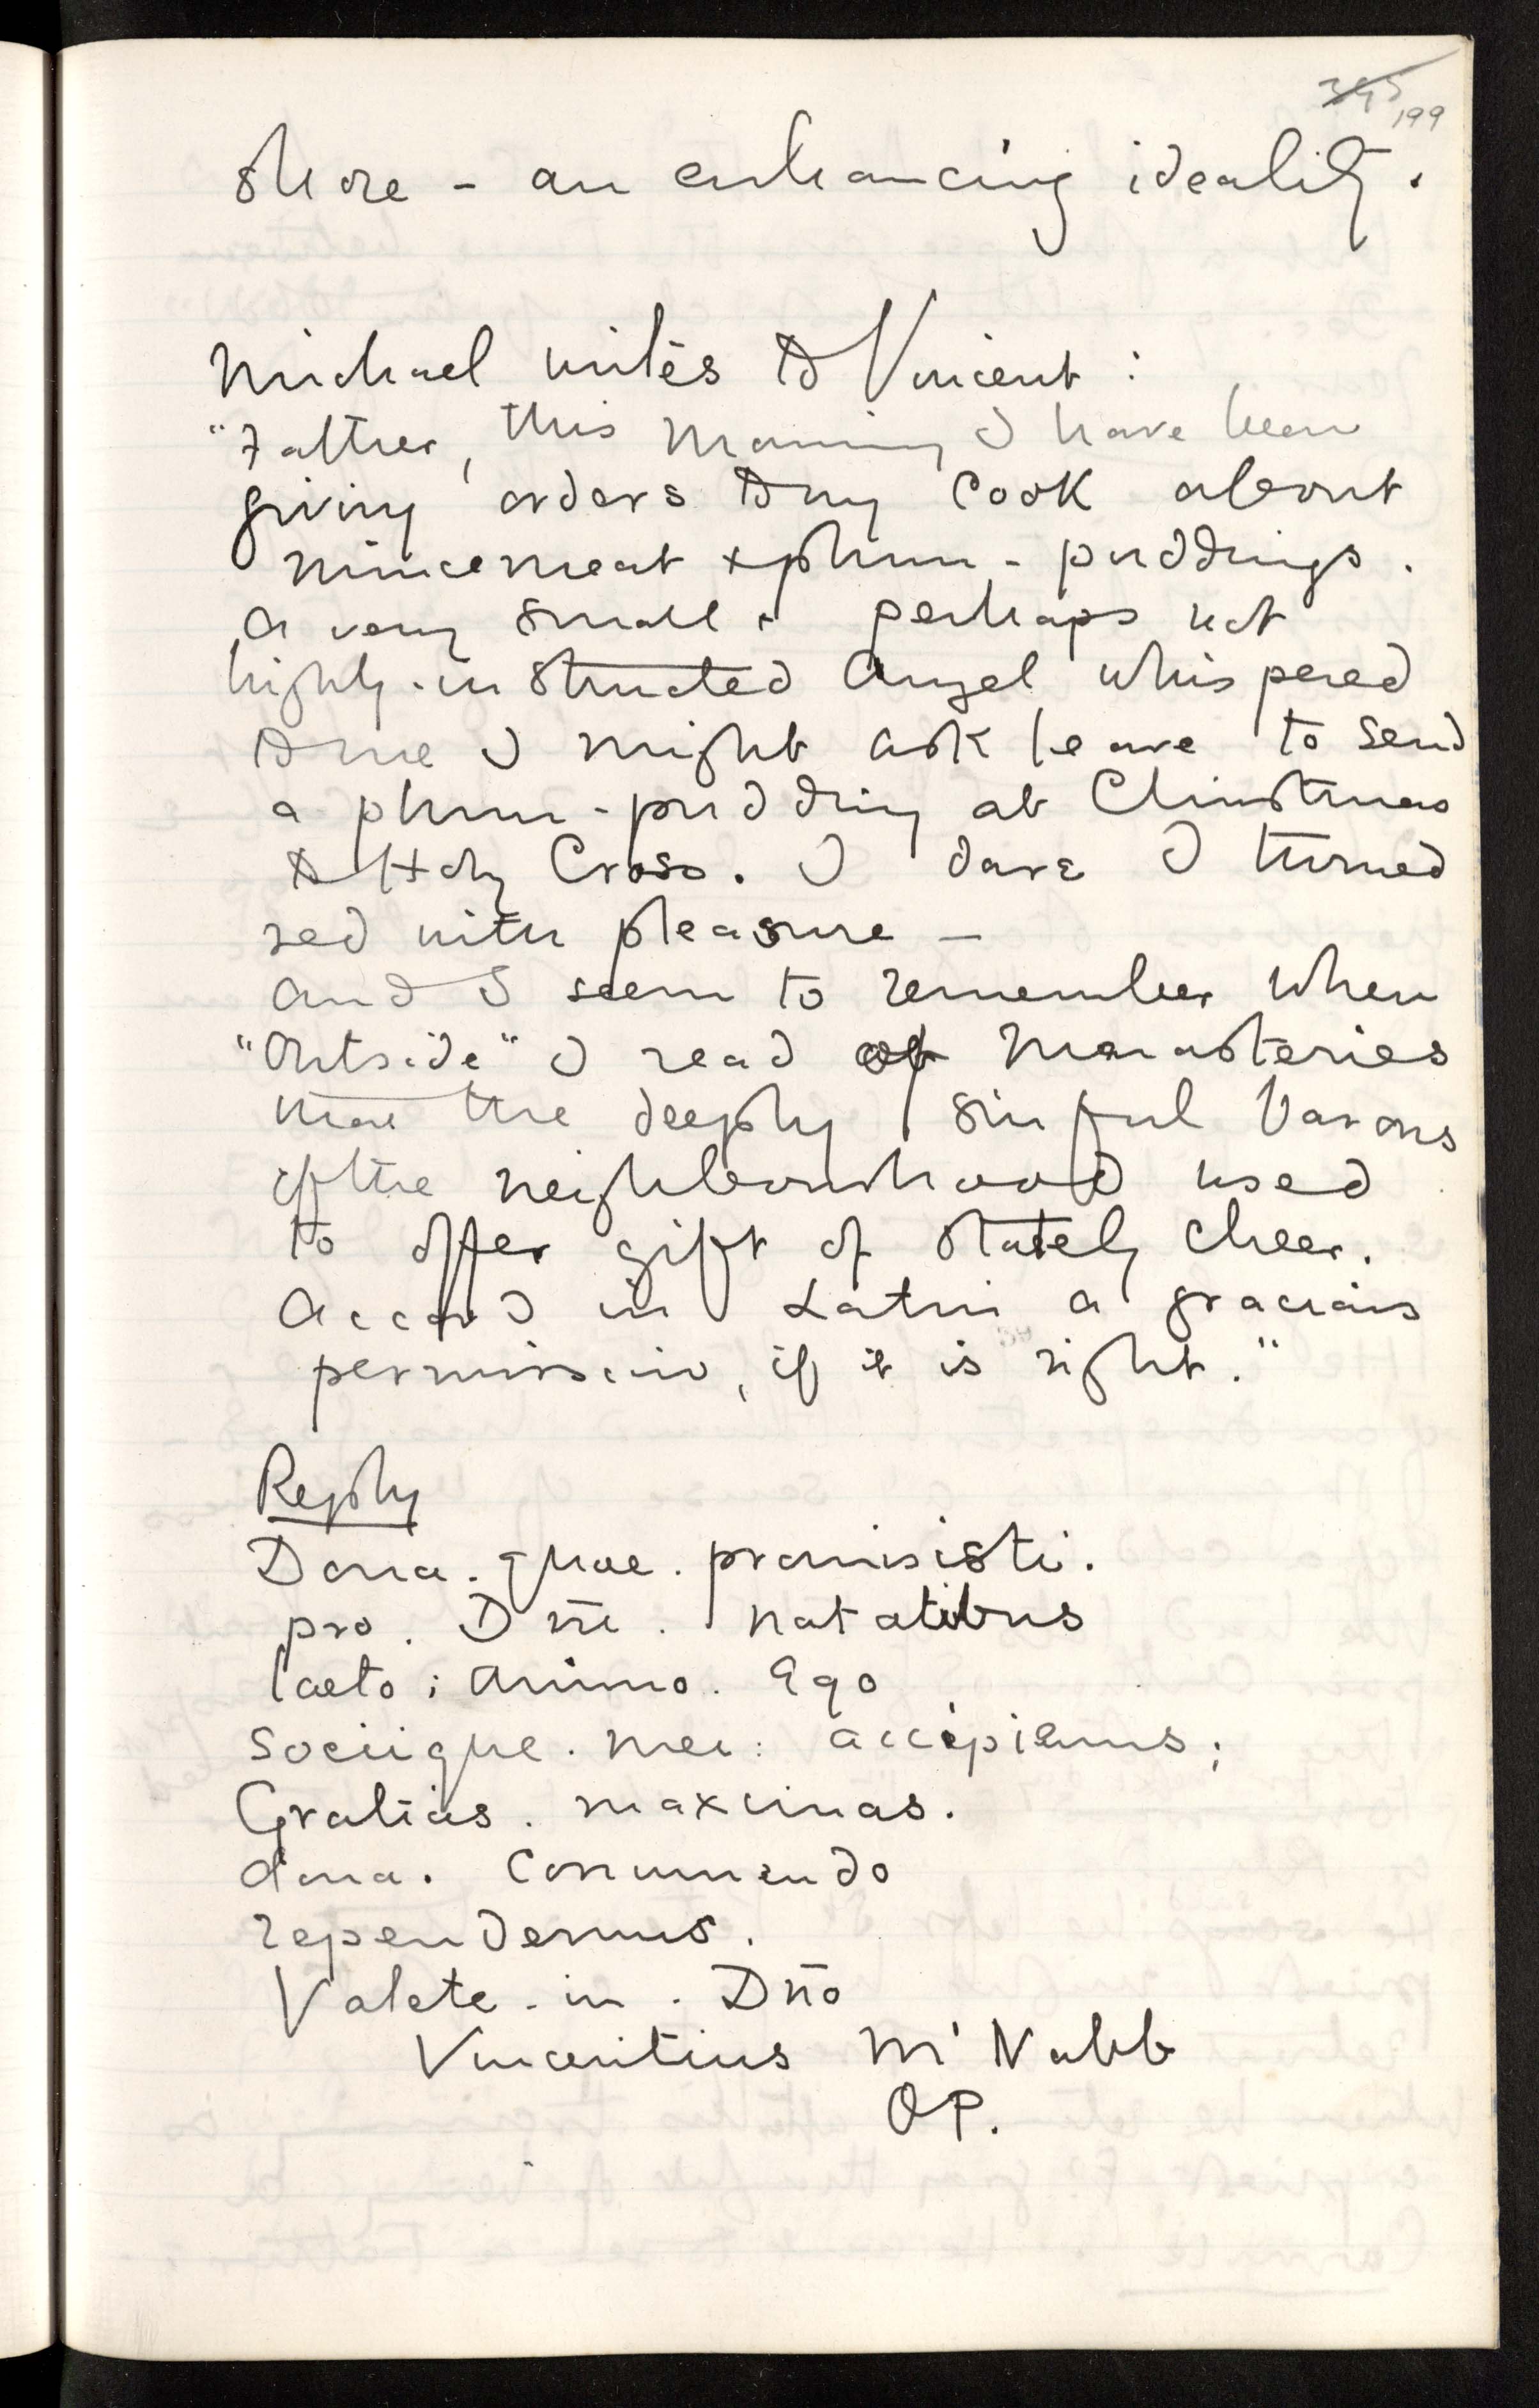 395
199
shore - an enhancing ideality.
Michael writes to Vincent:
"Father, this morning I have been
giving orders to my cook about
mincemeat + plum-puddings.
A very small + perhaps not
highly-instructed Angel whispered
to me I might ask leave to send
a plum-pudding at Christmas
to Holy Cross. I dare I turned
red with pleasure -
And I seem to remember when
"Outside" I read of Monasteries
that the deeply sinful Barons
of the neighbourhood used
to offer gift of stately cheer.
Accord in Latin a gracious
permission, if it is right."
Reply
Dona. quae. promisisti.
pro. Dni. natalibus
laeto; animo. Ego
sociique. mei: accipiemus;
Gratias. maximas.
dona. Commendo
rependemus.
Valete. in. Dno
Vincentius M'Nabb
OP.